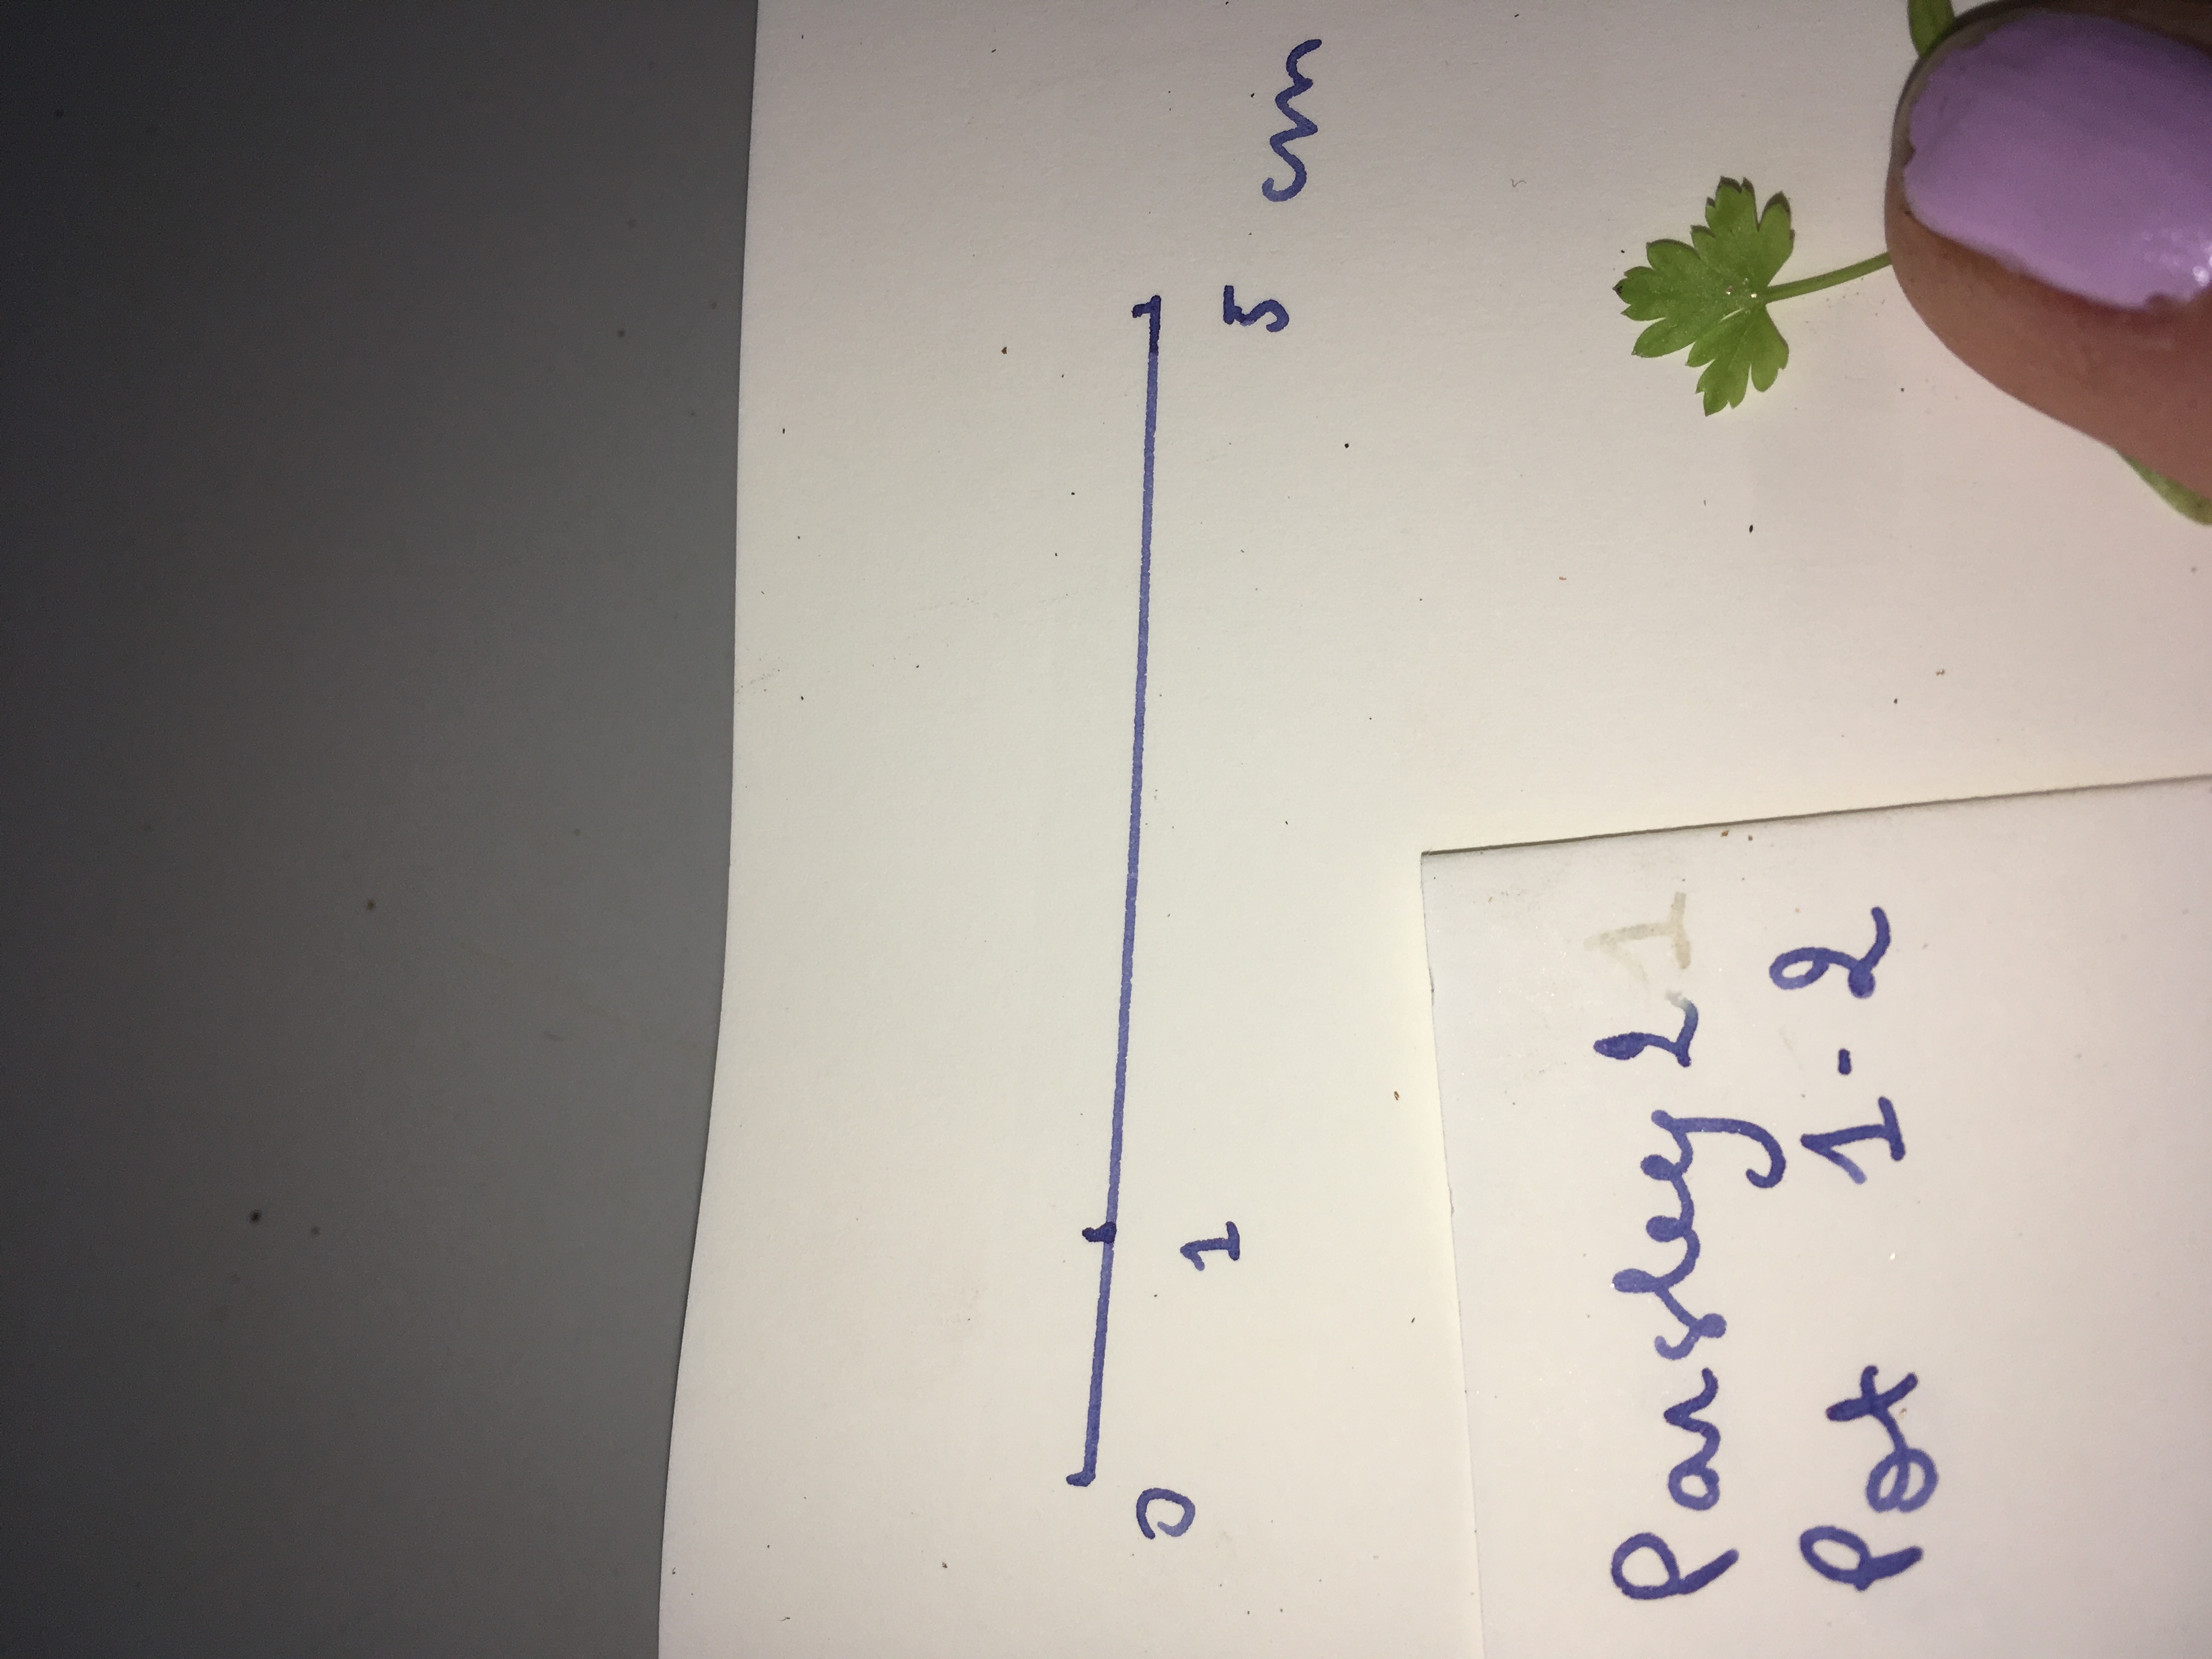 0 1 5 cm
Parsley 2 1
Pot 1-2